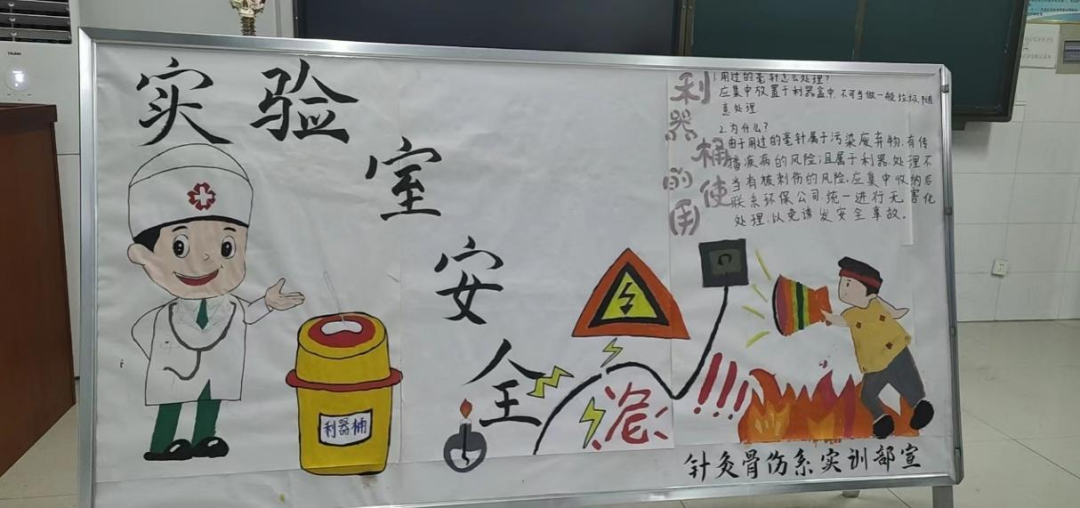 实验室安全
利器桶的使用
1.用过的毫针怎么处理?
应集中放置于利器盒中,不可当做一般垃圾,随
意处理
2.为什么?
由于用过的毫针属于污染废弃物,有传
播疾病的风险;且属于利器,处理不
当有被刺伤的风险,应集中收纳后
联系环保公司统一进行无害化
处理,以免诱发安全事故。
利器桶
危!!!
针灸骨伤系实训部宣